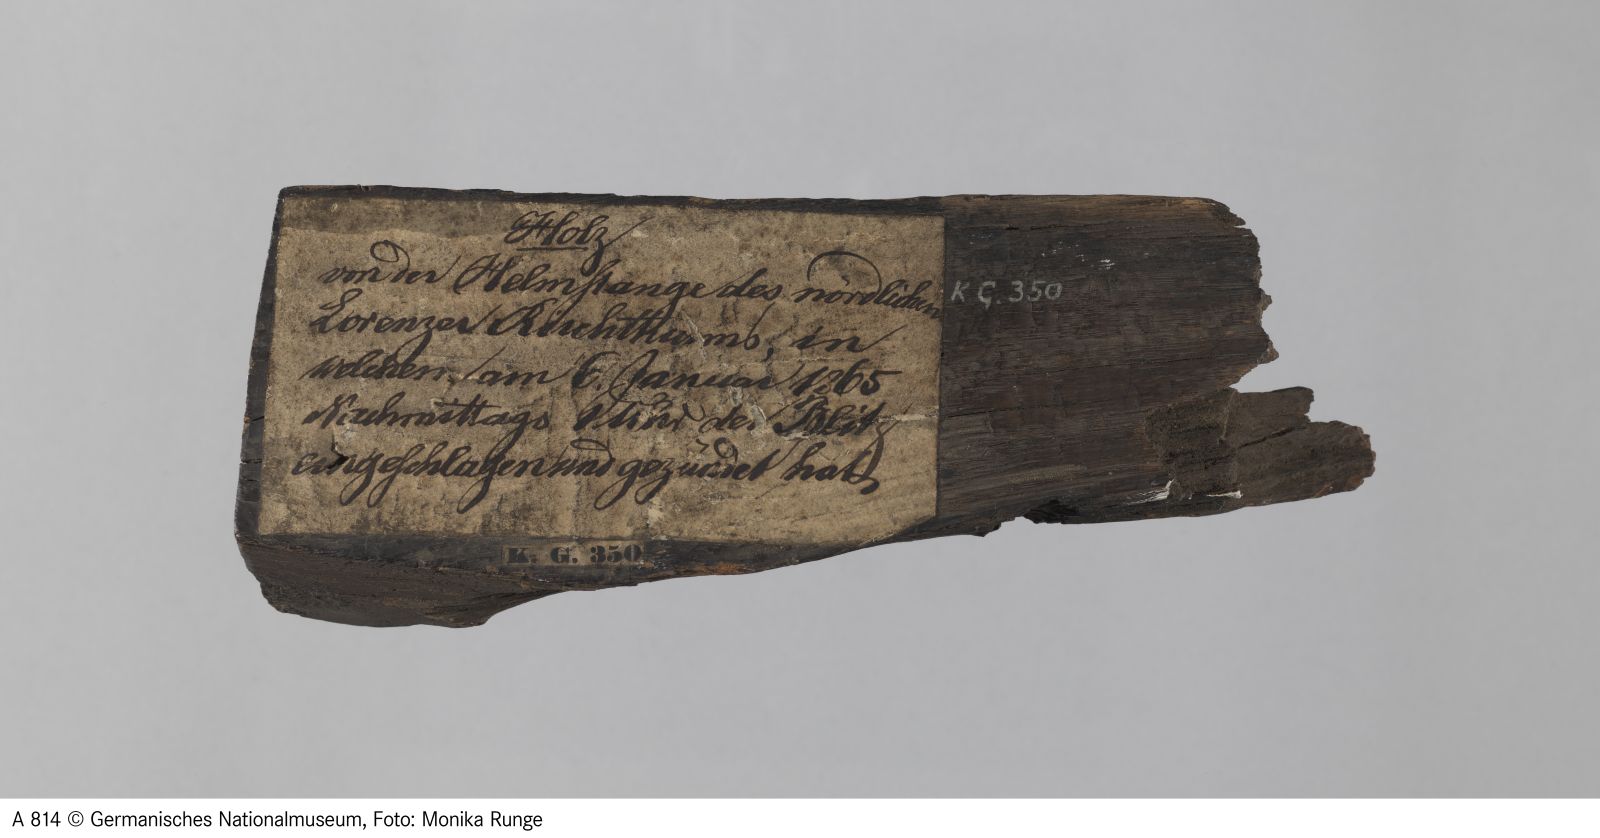 Holz
von der Helmstange des nördlichen
Lorenzer Kirchthurms, in
welchem am 6. Januar 1865
Nachmittags Uhr der Blitz
eingeschlagen und gezündet hat.
K G. 350
K. G. 350
A 814 © Germanisches Nationalmuseum, Foto: Monika Runge